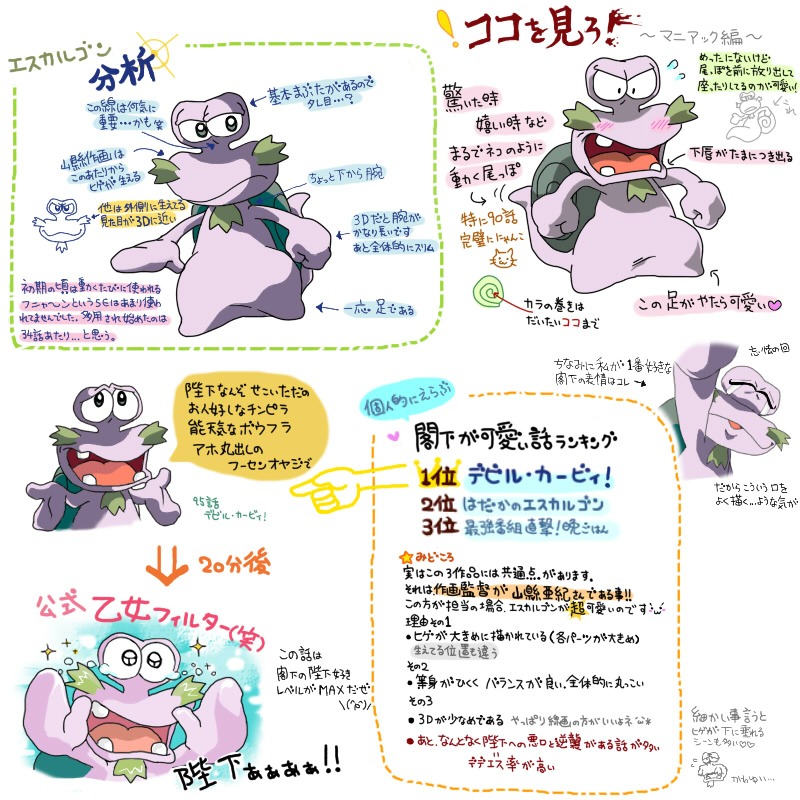 エスカルゴン
分析
この線は何気に
重要…かも笑
基本まぶたがあるので
タレ目…?
山縣作画は
このあたりから
ヒゲが生える
他は外側に生えてる
見た目が3Dに近い
ちょっと下から腕
3Dだと腕が
かなり長いです
あと全体的にスリム
一応足である
初期の頃は動くたびに使われる
フニャ〜ンというSEはあまり使わ
れてませんでした。多用され始めたのは
34話あたり…と思う。
ココを見ろ!
〜マニアック編〜
めったにないけど
尾っぽを前に放り出して
座ったりしてるのが可愛い!
←これ
驚いた時
嬉しい時など
まるでネコのように
動く尾っぽ
特に90話
完璧ににゃんこ
下唇がたまにつき出る
カラの巻きは
だいたいココまで
この足がやたら可愛い
陛下なんぞせこいただの
お人好しなチンピラ
能天気なボウフラ
アホ丸出しの
フーセンオヤジで
95話
デビル・カービィ!
20分後
公式乙女フィルター(笑)
陛下ぁぁぁぁ!!
この話は
閣下の陛下好き
レベルがMAXだぜ
\(^o^)/
個人的にえらぶ
閣下が可愛い話ランキング
1位 デビル・カービィ!
2位 はだかのエスカルゴン
3位 最強番組直撃!晩ごはん
みどころ
実はこの3作品には共通点があります。
それは作画監督が山縣亜紀さんである事!!
この方が担当の場合、エスカルゴンが超可愛いのです
理由その1
●ヒゲが大きめに描かれている(各パーツが大きめ)
生えてる位置も違う
その2
●等身がひくく バランスが良い、全体的に丸っこい
その3
●3Dが少なめである やっぱり線画の方がいいよネ
●あと、なんとなく陛下への悪口と逆襲がある話が多い
デデエス率が高い
ちなみに私が1番好きな
閣下の表情はコレ→
忘・怪の回
だからこういう口を
よく描く…ような気が
細かい事言うと
ヒゲが下に垂れる
シーンも多い
かわゆい…